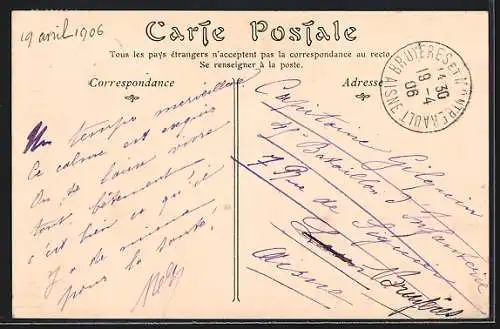 19 avril 1906
Carte Postale
Tous les pays étrangers n'acceptent pas la correspondance au recto.
Se renseigner à la poste.
Correspondance
Adresse
BRUYERES ET MONTBERAULT AISNE
14 30
19 -4
06
Un temps merveilleux
Ce calme est exquis
On se laisse vivre
tout bêtement
c'est bien ce qu'il
y a de mieux
pour la santé!
Capitaine
4e Bataillon d'Infanterie
7 Rue de
Bruyères
Aisne